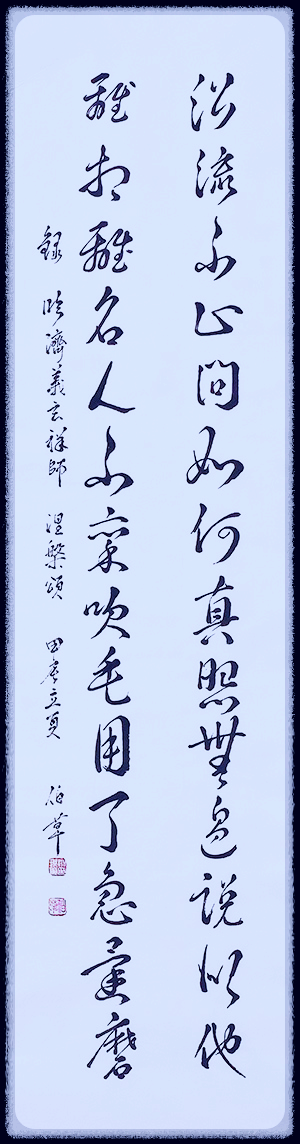 沿流不止問如何真照無邊說似他
離相離名人不稟吹毛用了急還磨
錄 臨濟義玄禪師 涅槃頌 甲辰立夏